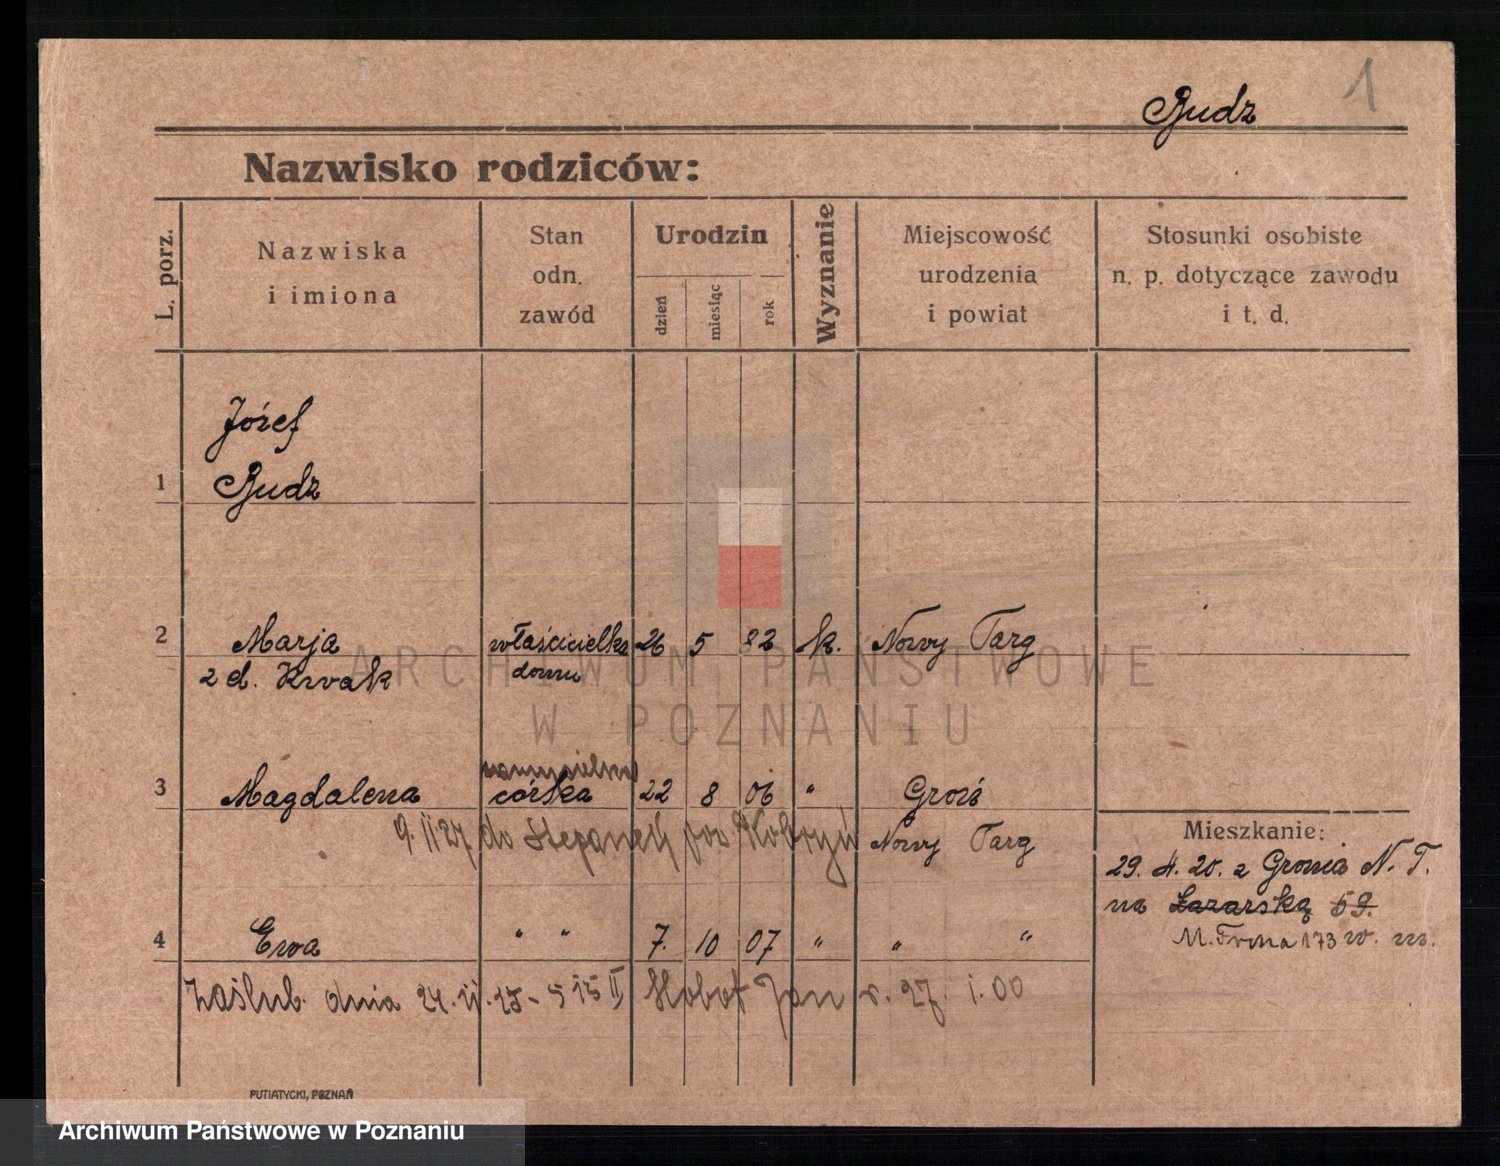 1
Budz
Nazwisko rodziców:
L. porz.
Nazwiska
i imiona
Stan
odn.
zawód
Urodzin
dzień
miesiąc
rok
Wyznanie
Miejscowość
urodzenia
i powiat
Stosunki osobiste
n. p. dotyczące zawodu
i t. d.
Józef
1 Budz
2 Marja właścicielka 26 5 82 k. Nowy Targ
z d. Kwak domu
ARCHIWUM PAŃSTWOWE
W POZNANIU
3 Magdalena córka 22 8 06 " Groń
9. 11 27 do Stepanech pow Kobryń Nowy Targ
Mieszkanie:
29. 4. 20. z Gronia N. T.
na Łazarską 69.
4 Ewa " " 7. 10 07 " " "
M. 173 w. m.
Zaślub. dnia 24. 11. 25 - 515 II Jan r. 27. 1. 00
PUTIATYCKI, POZNAŃ
Archiwum Państwowe w Poznaniu